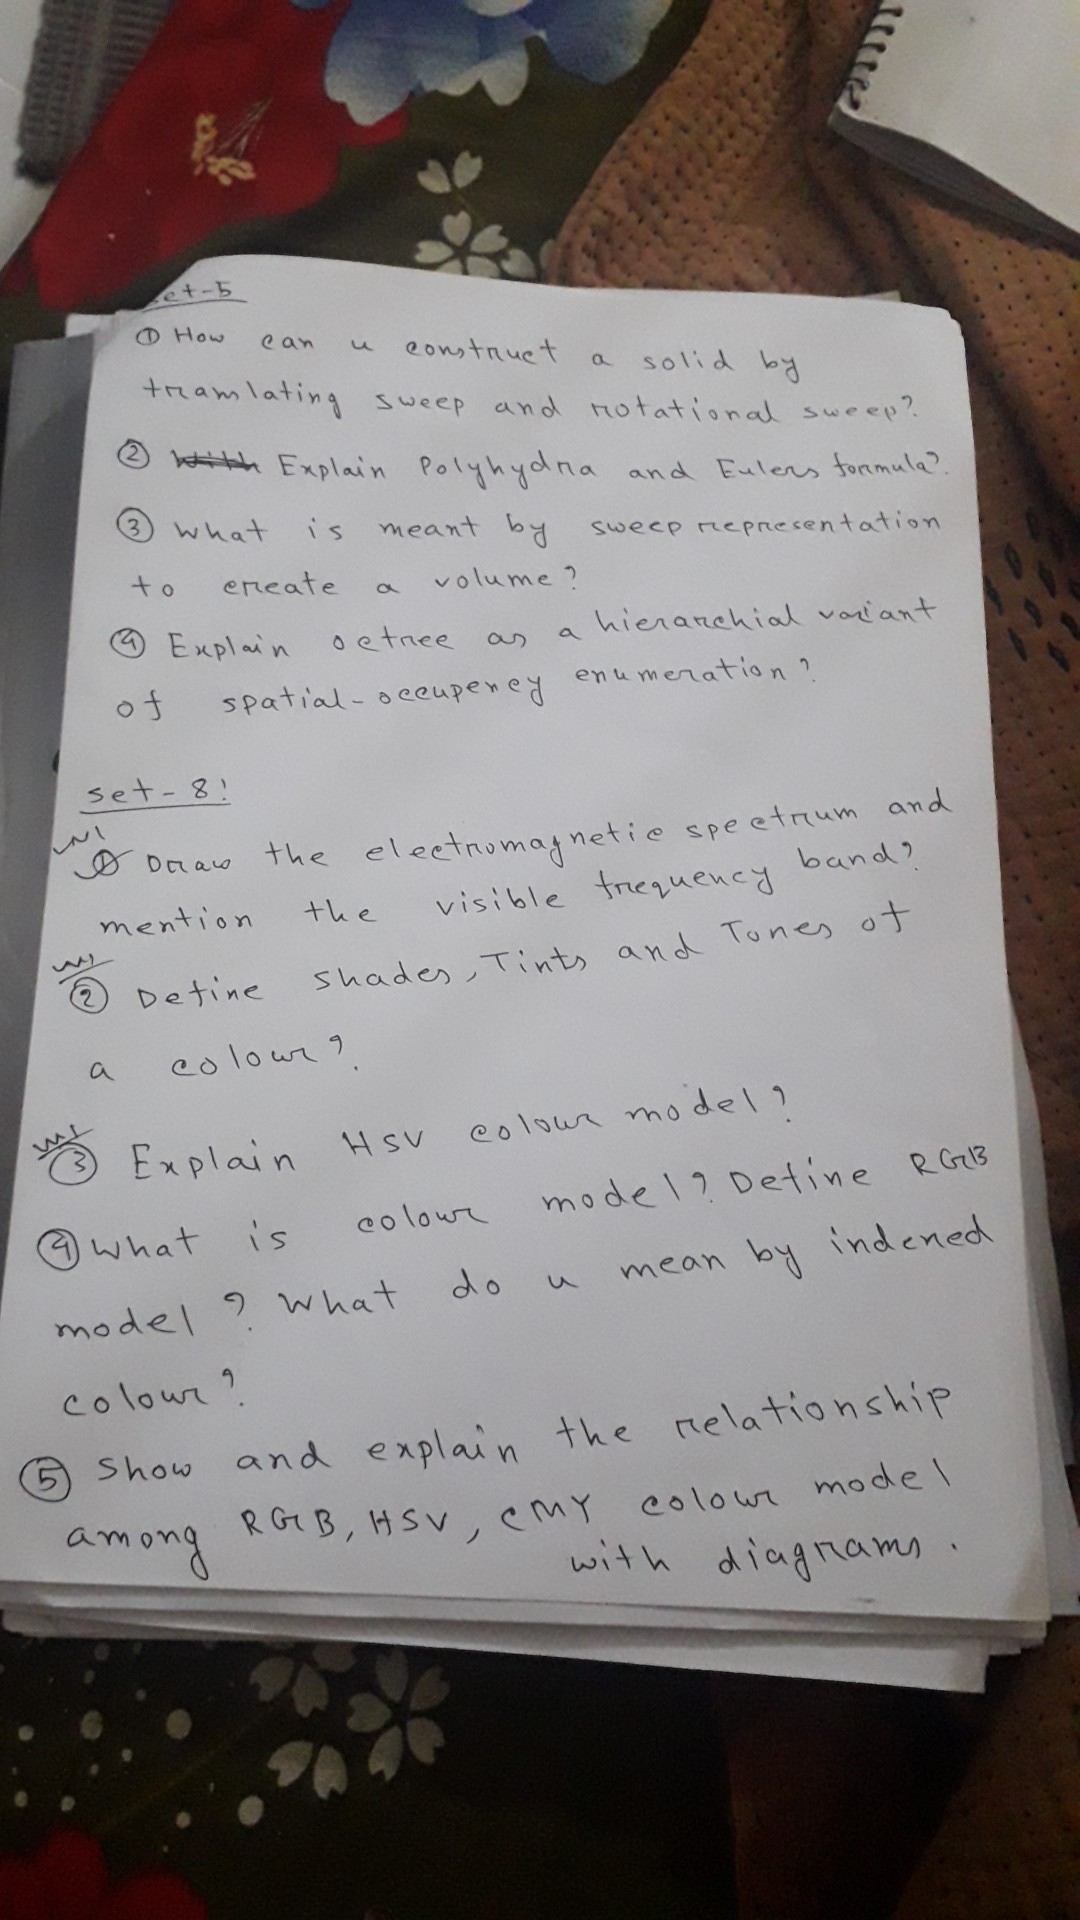 Set-5
① How can u construct a solid by
translating sweep and rotational sweep?
② Explain Polyhydra and Eulers formula?
③ What is meant by sweep representation
to create a volume?
④ Explain octree as a hierarchial variant
of spatial-occupency enumeration?
Set-8:
① Draw the electromagnetic spectrum and
mention the visible frequency band?
② Define shades, Tints and Tones of
a colour?
③ Explain HSV colour model?
④ What is colour model? Define RGB
model? What do u mean by indexed
colour?
⑤ Show and explain the relationship
among RGB, HSV, CMY colour model
with diagrams.